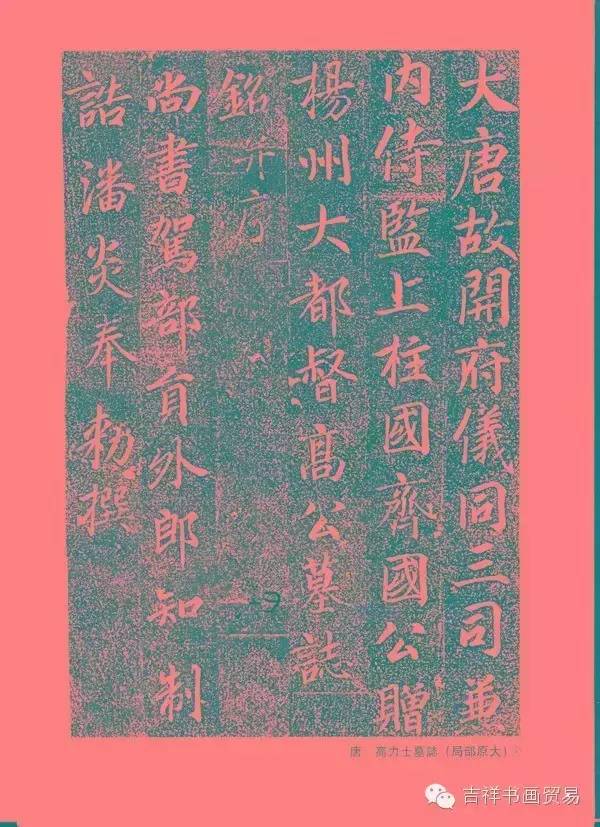 大唐故開府儀同三司兼
内侍監上柱國齊國公贈
楊州大都督高公墓誌
銘并序
尚書駕部員外郎知制
誥潘炎奉勑撰
唐 高力士墓誌（局部原大）
吉祥书画贸易